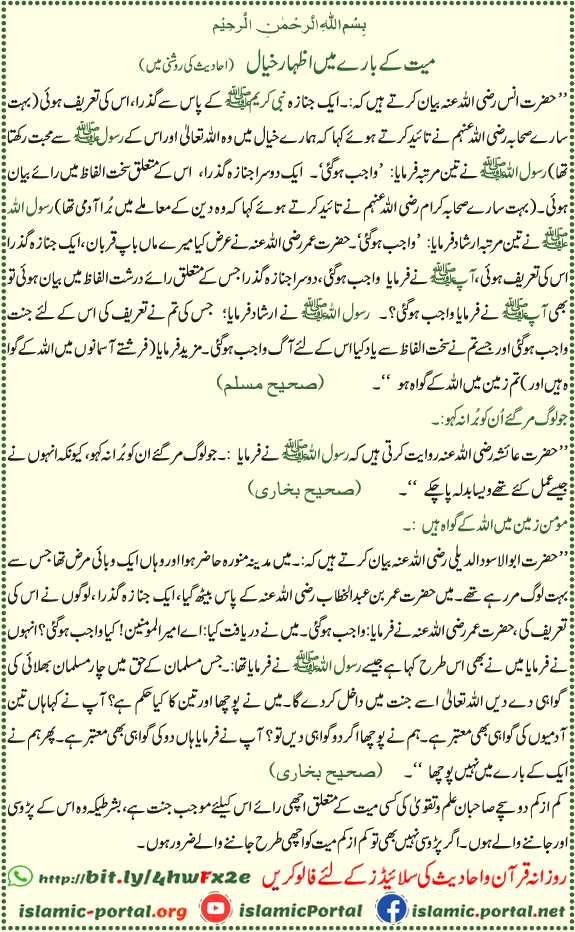 بِسْمِ اللهِ الرَّحْمٰنِ الرَّحِیْمِ
میت کے بارے میں اظہار خیال (احادیث کی روشنی میں)
’’حضرت انس رضی اللہ عنہ بیان کرتے ہیں کہ:۔ ایک جنازہ نبی کریم ﷺ کے پاس سے گذرا، اس کی تعریف ہوئی (بہت
سارے صحابہ رضی اللہ عنہم نے تائید کرتے ہوئے کہا کہ ہمارے خیال میں وہ اللہ تعالیٰ اور اس کے رسول ﷺ سے محبت رکھتا
تھا) رسول اللہ ﷺ نے تین مرتبہ فرمایا: ’واجب ہوگئی‘۔ ایک دوسرا جنازہ گذرا، اس کے متعلق سخت الفاظ میں رائے بیان
ہوئی۔ (بہت سارے صحابہ کرام رضی اللہ عنہم نے تائید کرتے ہوئے کہا کہ وہ دین کے معاملے میں بُرا آدمی تھا) رسول اللہ
ﷺ نے تین مرتبہ ارشاد فرمایا: ’واجب ہوگئی‘۔ حضرت عمر رضی اللہ عنہ نے عرض کیا میرے ماں باپ قربان، ایک جنازہ گذرا
اس کی تعریف ہوئی، آپ ﷺ نے فرمایا واجب ہوگئی، دوسرا جنازہ گذرا جس کے متعلق رائے درشت الفاظ میں بیان ہوئی تو
بھی آپ ﷺ نے فرمایا واجب ہوگئی؟۔ رسول اللہ ﷺ نے ارشاد فرمایا؛ جس کی تم نے تعریف کی اس کے لئے جنت
واجب ہوگئی اور جسے تم نے سخت الفاظ سے یاد کیا اس کے لئے آگ واجب ہوگئی۔ مزید فرمایا (فرشتے آسمانوں میں اللہ کے گوا
ہ ہیں اور) تم زمین میں اللہ کے گواہ ہو ‘‘۔ (صحیح مسلم)
جو لوگ مر گئے اُن کو بُرا نہ کہو:۔
’’حضرت عائشہ رضی اللہ عنہ روایت کرتی ہیں کہ رسول اللہ ﷺ نے فرمایا :۔ جو لوگ مر گئے ان کو بُرا نہ کہو، کیونکہ انہوں نے
جیسے عمل کئے تھے ویسا بدلہ پاچکے ‘‘۔ (صحیح بخاری)
مومن زمین میں اللہ کے گواہ ہیں :۔
’’حضرت ابوالاسود الدیلی رضی اللہ عنہ بیان کرتے ہیں کہ:۔ میں مدینہ منورہ حاضر ہوا اور وہاں ایک وبائی مرض تھا جس سے
بہت لوگ مر رہے تھے۔ میں حضرت عمر بن عبدالخطاب رضی اللہ عنہ کے پاس بیٹھ گیا، ایک جنازہ گذرا، لوگوں نے اس کی
تعریف کی، حضرت عمر رضی اللہ عنہ نے فرمایا: واجب ہوگئی۔ میں نے دریافت کیا: اے امیرالمومنین! کیا واجب ہوگئی؟ انہوں
نے فرمایا میں نے بھی اس طرح کہا ہے جیسے رسول اللہ ﷺ نے فرمایا تھا:۔ جس مسلمان کے حق میں چار مسلمان بھلائی کی
گواہی دے دیں اللہ تعالیٰ اسے جنت میں داخل کردے گا۔ میں نے پوچھا اور تین کا کیا حکم ہے؟ آپ نے کہا ہاں تین
آدمیوں کی گواہی بھی معتبر ہے۔ ہم نے پوچھا اگر دو گواہی دیں تو؟ آپ نے فرمایا ہاں دو کی گواہی بھی معتبر ہے۔ پھر ہم نے
ایک کے بارے میں نہیں پوچھا ‘‘۔ (صحیح بخاری)
کم از کم دو سچے صاحبان علم و تقویٰ کی کسی میت کے متعلق اچھی رائے اس کیلئے موجب جنت ہے، بشرطیکہ وہ اس کے پڑوسی
اور جاننے والے ہوں۔ اگر پڑوسی نہیں بھی تو کم از کم میت کو اچھی طرح جاننے والے ضرور ہوں۔
روزانہ قرآن و احادیث کی سلائیڈز کے لئے فالو کریں http://bit.ly/4hwFx2e
islamic-portal.org islamicPortal islamic.portal.net